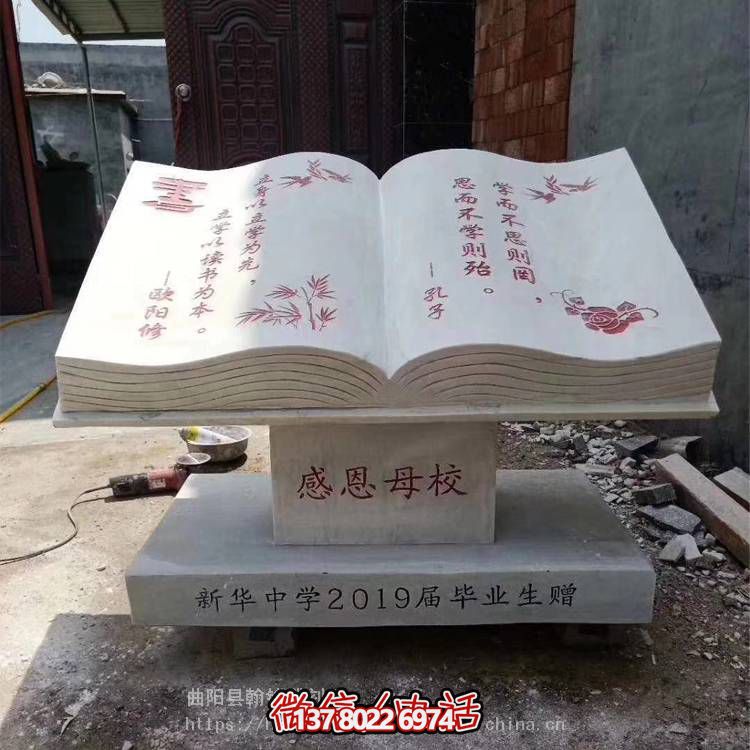 立身以立学为先，
立学以读书为本。
—欧阳修
学而不思则罔，
思而不学则殆。
—孔子
感恩母校
新华中学2019届毕业生赠
曲阳县翰
微信/电话
13780226974
https://
china.cn